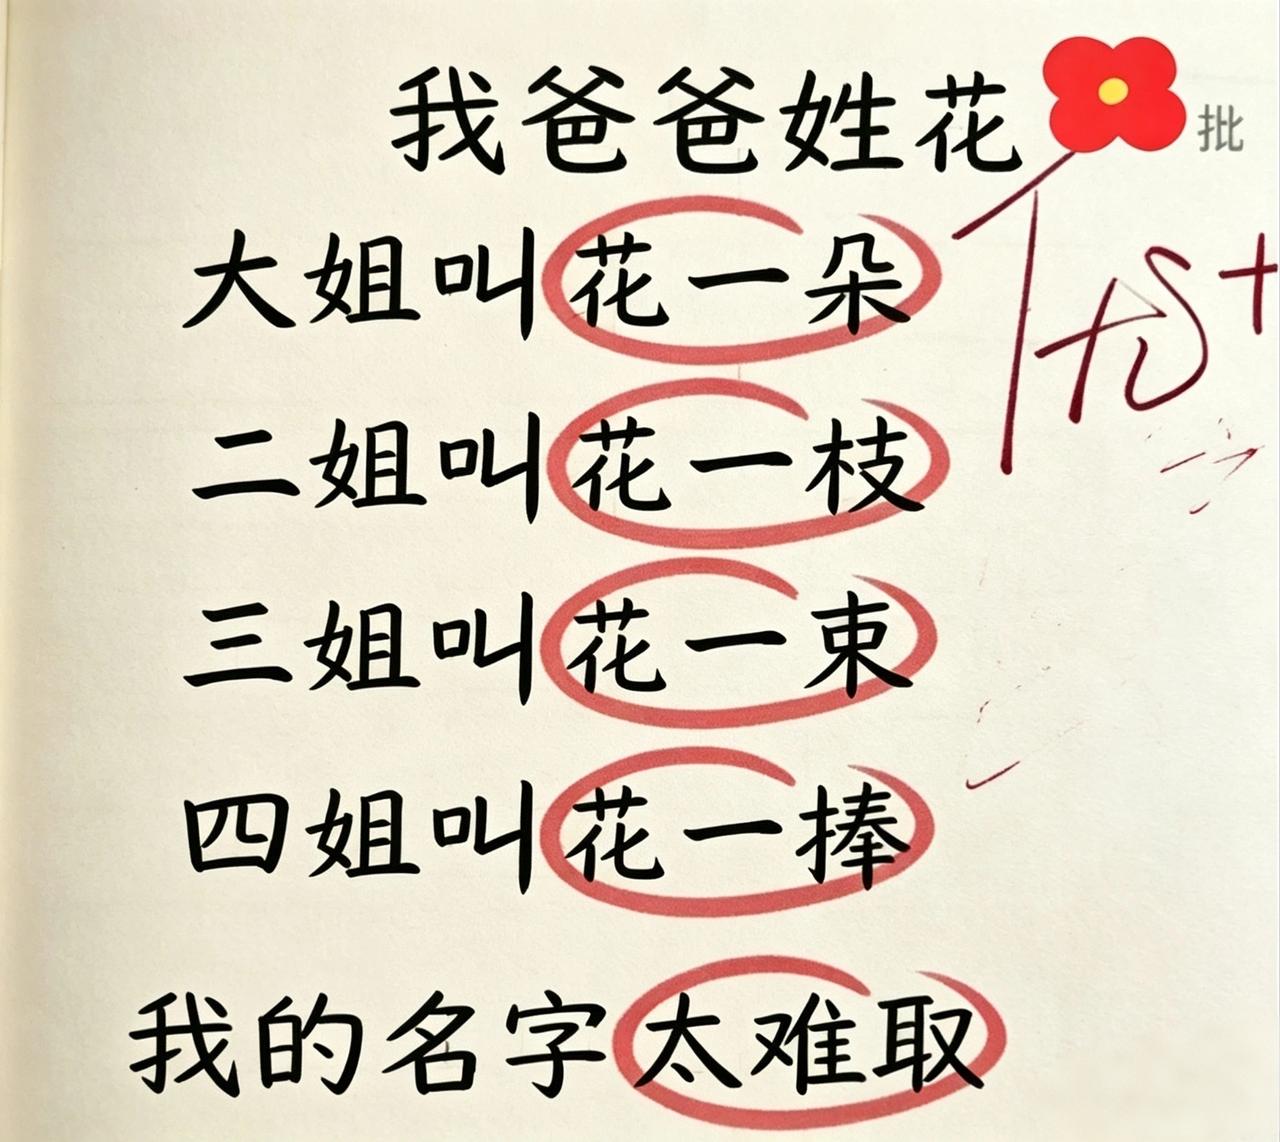 我爸爸姓花
批
大姐叫花一朵
二姐叫花一枝
三姐叫花一束
四姐叫花一捧
我的名字太难取